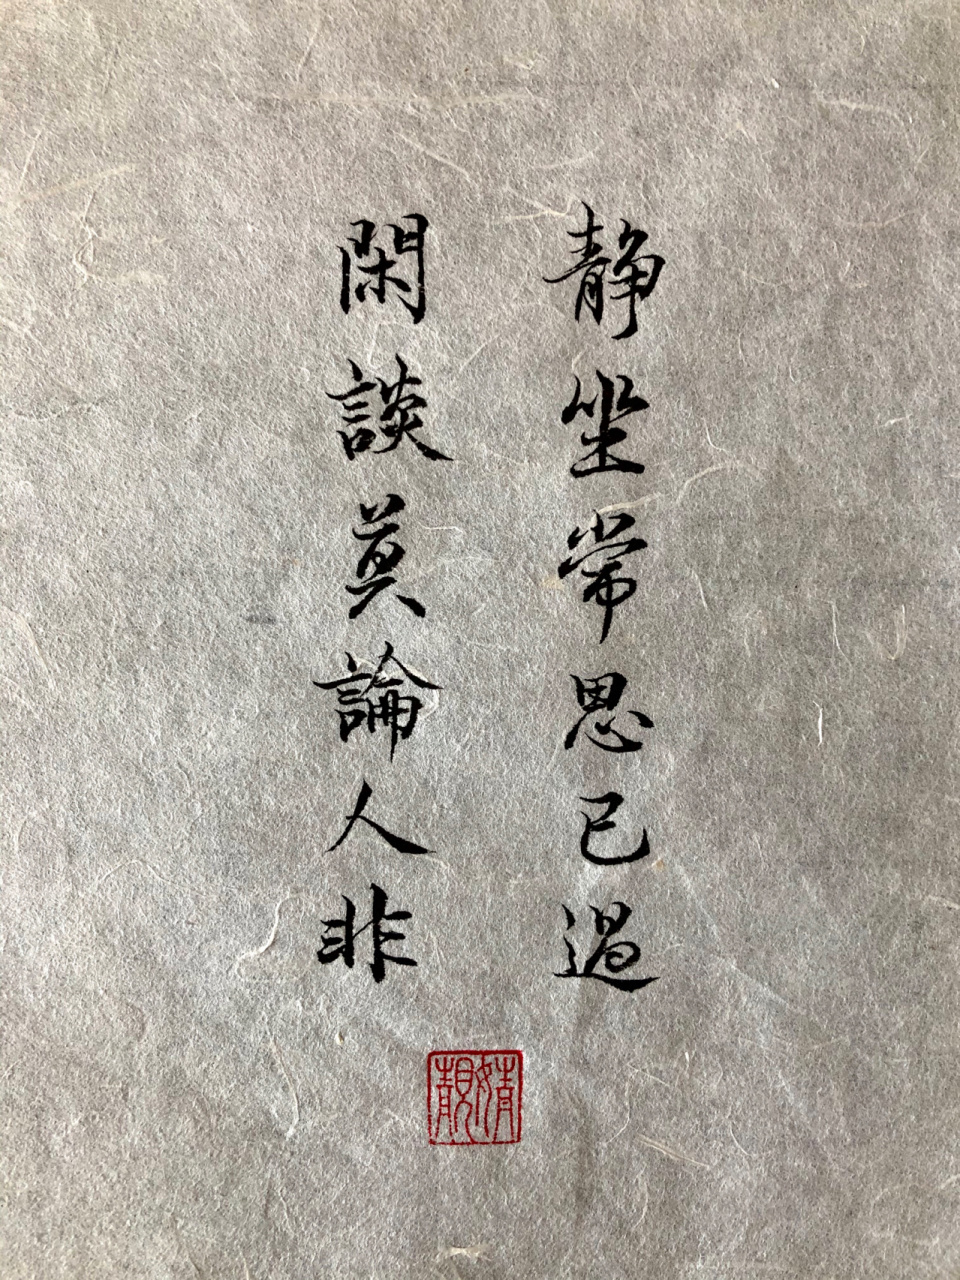 静坐常思己過
閑談莫論人非
婧靚